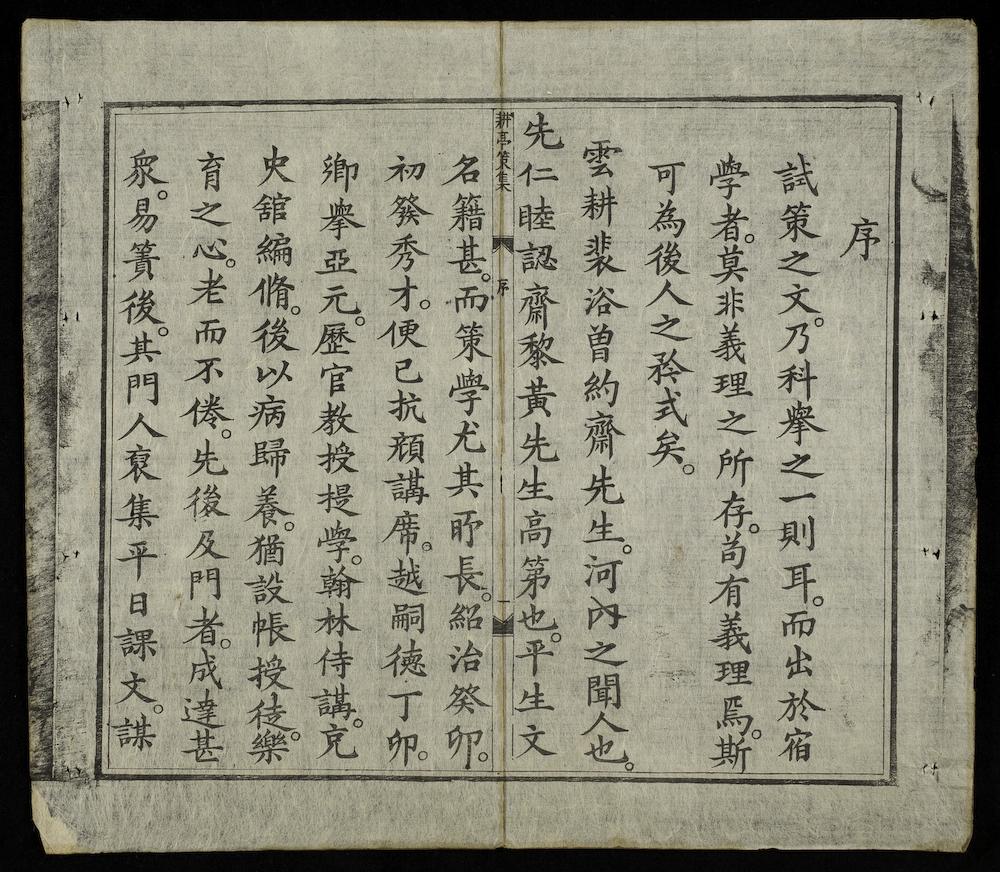 序
試策之文。乃科擧之一則耳。而出於宿
學者。莫非義理之所存。苟有義理焉。斯
可為後人之矜式矣。
雲耕裴浴曽約齋先生。河內之聞人也。
先仁睦認齋黎黃先生高第也。平生文
耕亭策集
序
一
名籍甚。而策學尤其所長。紹治癸卯。
初發秀才。便已抗顔講席。越嗣德丁卯。
鄉擧亞元。歷官教授提學。翰林侍講。充
史舘編脩。後以病歸養。猶設帳授徒。樂
育之心。老而不倦。先後及門者。成達甚
衆。易簀後。其門人裒集平日課文。謀